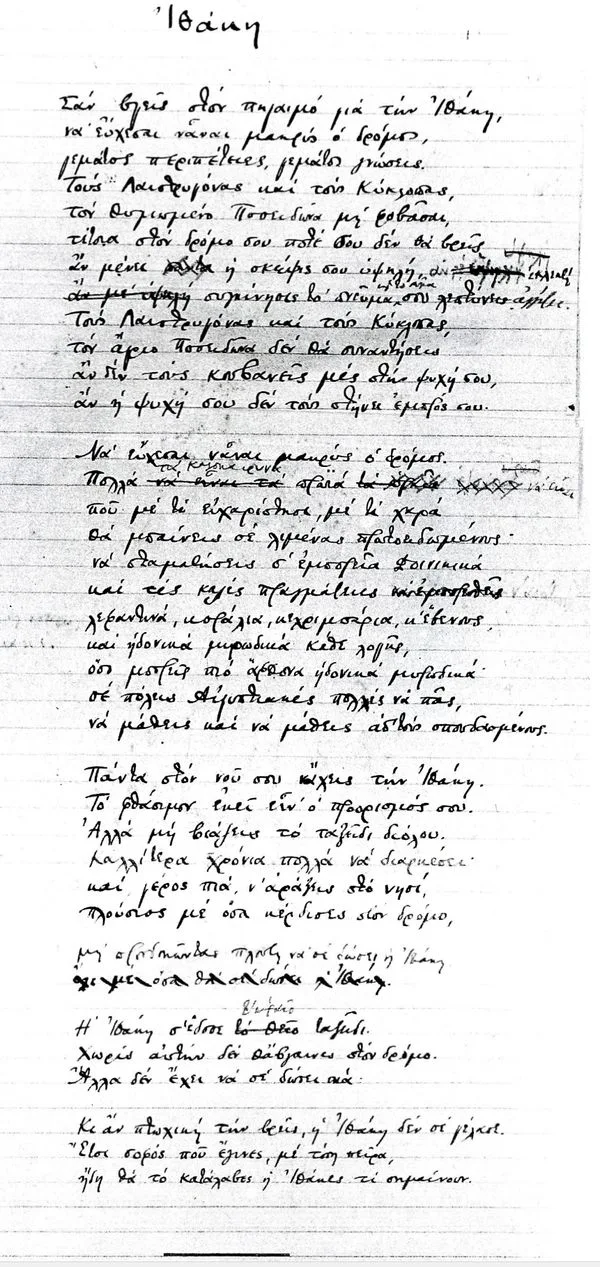 Ἰθάκη
Σάν βγεῖς στόν πηγαιμό γιά τήν Ἰθάκη,
νά εὔχεσαι νἆναι μακρύς ὁ δρόμος,
γεμάτος περιπέτειες, γεμάτος γνώσεις.
Τούς Λαιστρυγόνας καί τούς Κύκλωπας,
τόν θυμωμένο Ποσειδῶνα μή φοβᾶσαι,
τέτοια στόν δρόμο σου ποτέ σου δέν θά βρεῖς
ἄν μένει ἡ σκέψις σου ὑψηλή, ἄν ἐκλεκτή
συγκίνησις τό πνεῦμα σου ἀγγίζει.
Τούς Λαιστρυγόνας καί τούς Κύκλωπας,
τόν ἄγριο Ποσειδῶνα δέν θά συναντήσεις
ἄν δέν τούς κουβανεῖς μές στήν ψυχή σου,
ἄν ἡ ψυχή σου δέν τούς στήνει ἐμπρός σου.
Νά εὔχεσαι νἆναι μακρύς ὁ δρόμος.
τά καλοκαιρινά
Πολλά νά εἶναι τά πρωϊά νά εἶναι
πού μέ τί εὐχαρίστησι, μέ τί χαρά
θά μπαίνεις σέ λιμένας πρωτοειδωμένους·
νά σταματήσεις σ' ἐμπορεῖα Φοινικικά
καί τές καλές πραγμάτειες
σεντέφια καί κοράλλια, κεχριμπάρια, κ' ἔβενους,
καί ἡδονικά μυρωδικά κάθε λογῆς,
ὅσο μπορεῖς πιό ἄφθονα ἡδονικά μυρωδικά·
σέ πόλεις Αἰγυπτιακές πολλές νά πᾶς,
νά μάθεις καί νά μάθεις ἀπ' τούς σπουδασμένους.
Πάντα στόν νοῦ σου νἄχεις τήν Ἰθάκη.
Τό φθάσιμον ἐκεῖ εἶν' ὁ προορισμός σου.
Ἀλλά μή βιάζεις τό ταξεῖδι διόλου.
Καλλίτερα χρόνια πολλά νά διαρκέσει·
καί γέρος πιά ν' ἀράξεις στό νησί,
πλούσιος μέ ὅσα κέρδισες στόν δρόμο,
μή προσδοκῶντας πλούτη νά σέ δώσει ἡ Ἰθάκη
ὄχι μέ ὅσα θά σέ δώσει ἡ Ἰθάκη.
ὡραῖο
Ἡ Ἰθάκη σ' ἔδωσε τό θεῖο ταξεῖδι.
Χωρίς αὐτήν δέν θἄβγαινες στόν δρόμο.
Ἄλλα δέν ἔχει νά σέ δώσει πιά.
Κι ἄν πτωχική τήν βρεῖς, ἡ Ἰθάκη δέν σέ γέλασε.
Ἔτσι σοφός πού ἔγινες, μέ τόση πεῖρα,
ἤδη θά τό κατάλαβες ἡ Ἰθάκες τί σημαίνουν.